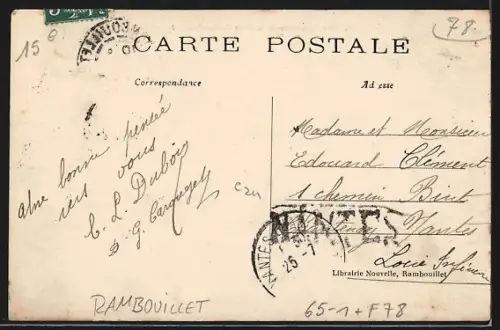 15 €
RAMBOUILLET
78.
CARTE POSTALE
Correspondance
Adresse
bonne pensée
vers vous
E. L. Dubois
G.
C2U
Madame et Monsieur
Edouard Clément
1 chemin
NANTES
Nantes
Loire Inférieure
NANTES
25-7
Librairie Nouvelle, Rambouillet
RAMBOUILLET
65-1 + F78